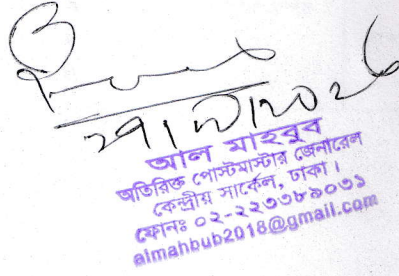 আল মাহবুব
অতিরিক্ত পোস্টমাস্টার জেনারেল
কেন্দ্রীয় সার্কেল, ঢাকা।
ফোনঃ ০২-২২৩৩৮৯০৩১
almahbub2018@gmail.com